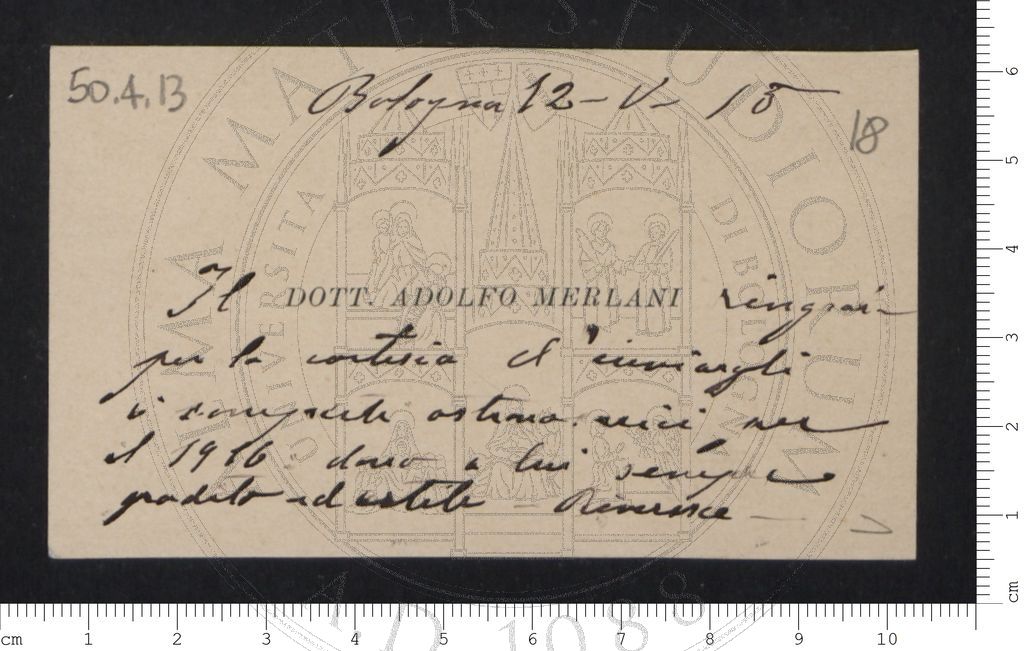 50.4.13
Bologna 12-V-15
18
Il DOTT. ADOLFO MERLANI ringrazi-
per la cortesia d'inviargli
i computi astronomici per
il 1916 dono a lui sempre
gradito ed utile - Riverisce -
ALMA MATER STUDIORUM
UNIVERSITA DI BOLOGNA
A.D. 1088
cm 1 2 3 4 5 6 7 8 9 10
cm 1 2 3 4 5 6